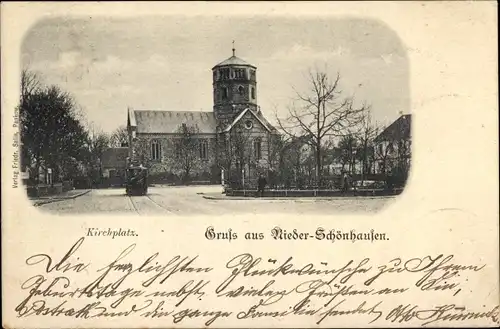 Verlag Friedr. Stein, Pankow
Kirchplatz.
Gruss aus Nieder-Schönhausen.
Die herzlichsten Glückwünsche zu Ihrem
Geburtstage nebst vielen Grüßen an Sie
und die ganze Familie sendet Otto